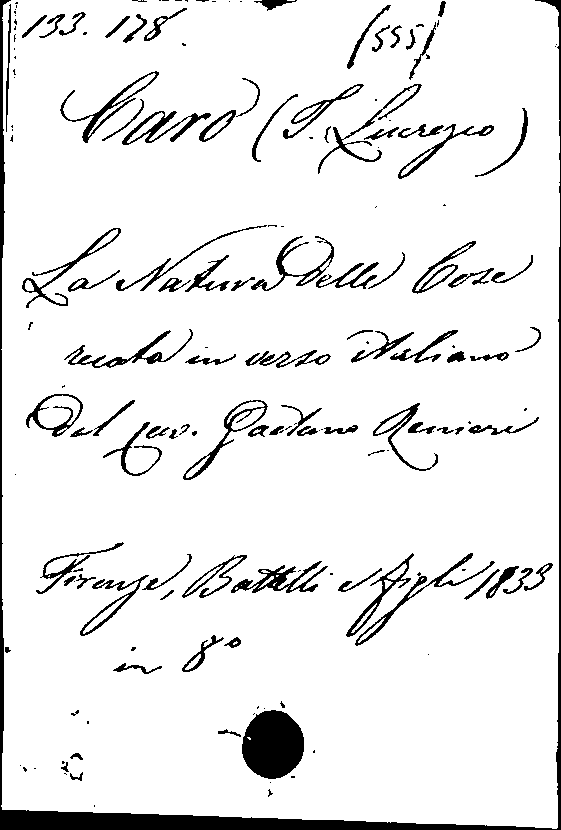 133. 178. (555)
Caro (T. Lucrezio)
La Natura delle Cose
recata in verso italiano
dal cav. Gaetano Renieri
Firenze, Battelli e figli 1833
in 8°